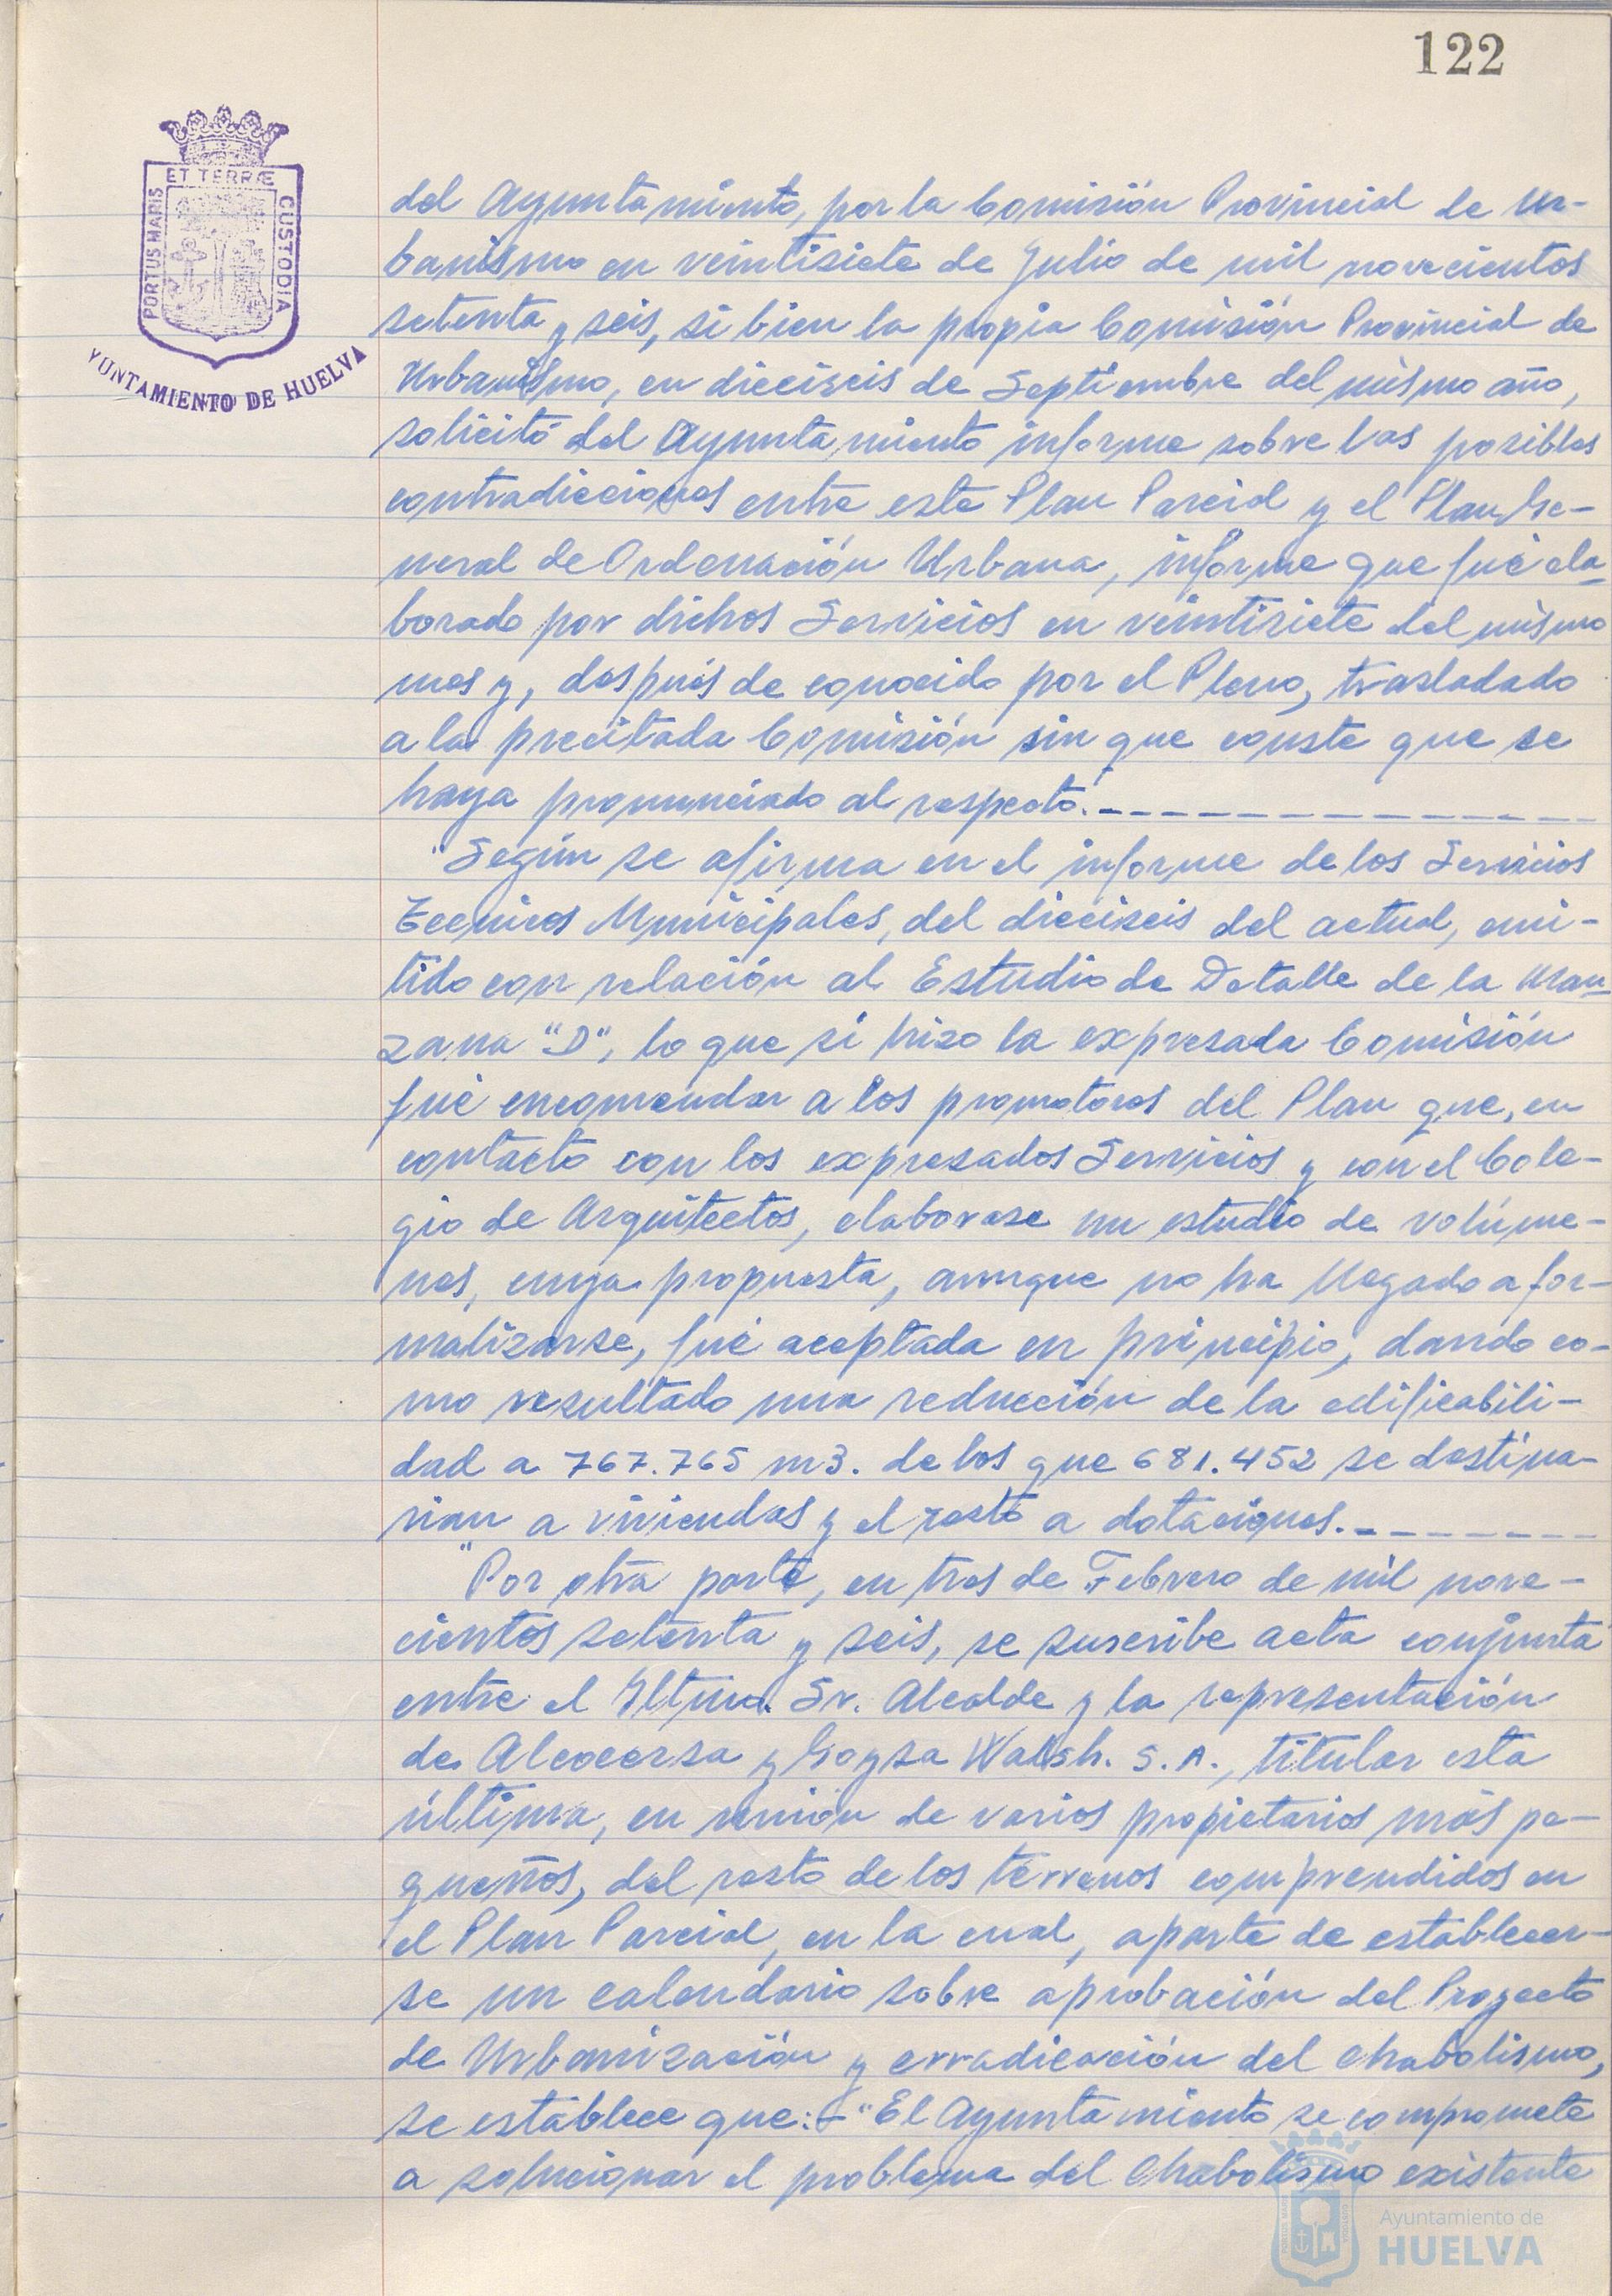 122
ET TERRÆ
PORTUS MARIS
CUSTODIA
YUNTAMIENTO DE HUELVA
del Ayuntamiento, por la Comisión Provincial de Ur-
banismo en veintisiete de Julio de mil novecientos
setenta y seis, si bien la propia Comisión Provincial de
Urbanismo, en dieciseis de Septiembre del mismo año,
solicitó del Ayuntamiento informe sobre las posibles
contradicciones entre este Plan Parcial y el Plan Ge-
neral de Ordenación Urbana, informe que fué ela-
borado por dichos Servicios en veintisiete del mismo
mes y, después de conocido por el Pleno, trasladado
a la precitada Comisión sin que conste que se
haya pronunciado al respecto.
"Según se afirma en el informe de los Servicios
Tecnicos Municipales, del dieciseis del actual, emi-
tido con relación al Estudio de Detalle de la Man-
zana "D", lo que si hizo la expresada Comisión
fué encomendar a los promotores del Plan que, en
contacto con los expresados Servicios y con el Cole-
gio de Arquitectos, elaborase un estudio de volúme-
nes, cuya propuesta, aunque no ha llegado a for-
malizarse, fué aceptada en principio, dando co-
mo resultado una reducción de la edificabili-
dad a 767.765 m3. de los que 681.452 se destina-
rian a viviendas y el resto a dotaciones.
"Por otra parte, en tres de Febrero de mil nove-
cientos setenta y seis, se suscribe acta conjunta
entre el Iltmo. Sr. Alcalde y la representación
de Alcocersa y Goysa Walsh. S.A., titular esta
última, en unión de varios propietarios más pe-
queños, del resto de los terrenos comprendidos en
el Plan Parcial, en la cual, aparte de establecer-
se un calendario sobre aprobación del Proyecto
de Urbanización y erradicación del chabolismo,
se establece que:- "El Ayuntamiento se compromete
a solucionar el problema del Chabolismo existente
Ayuntamiento de
HUELVA